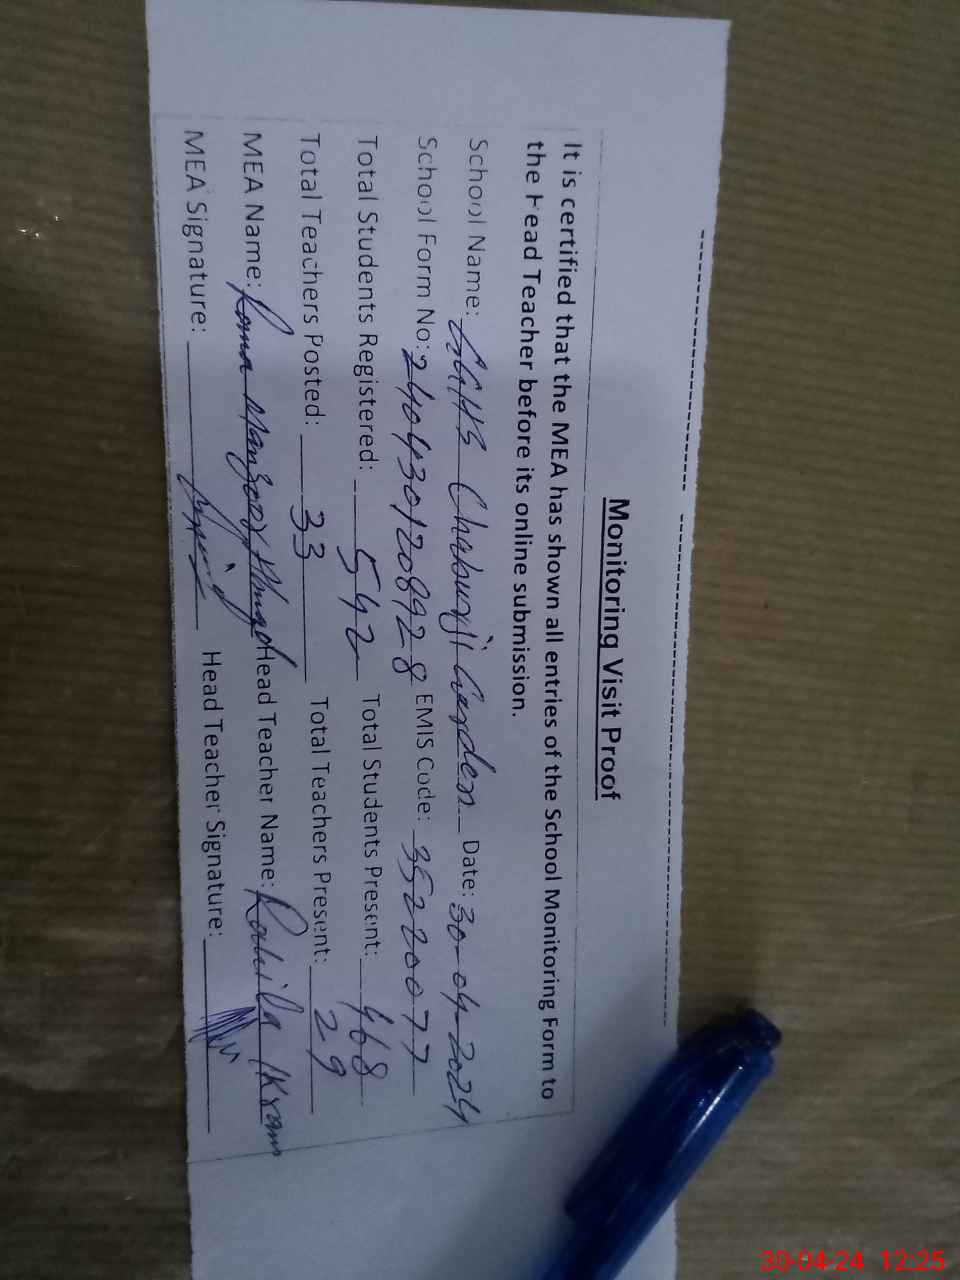 Monitoring Visit Proof
It is certified that the MEA has shown all entries of the School Monitoring Form to
the Head Teacher before its online submission.
School Name: GGHS Chuburji Garden Date: 30-04-2024
School Form No: 2404301208928 EMIS Code: 35220077
Total Students Registered: 542 Total Students Present: 468
Total Teachers Posted: 33 Total Teachers Present: 29
MEA Name: Manzoor Head Teacher Name: Ikram
MEA Signature: Head Teacher Signature:
30-04-24 12:25